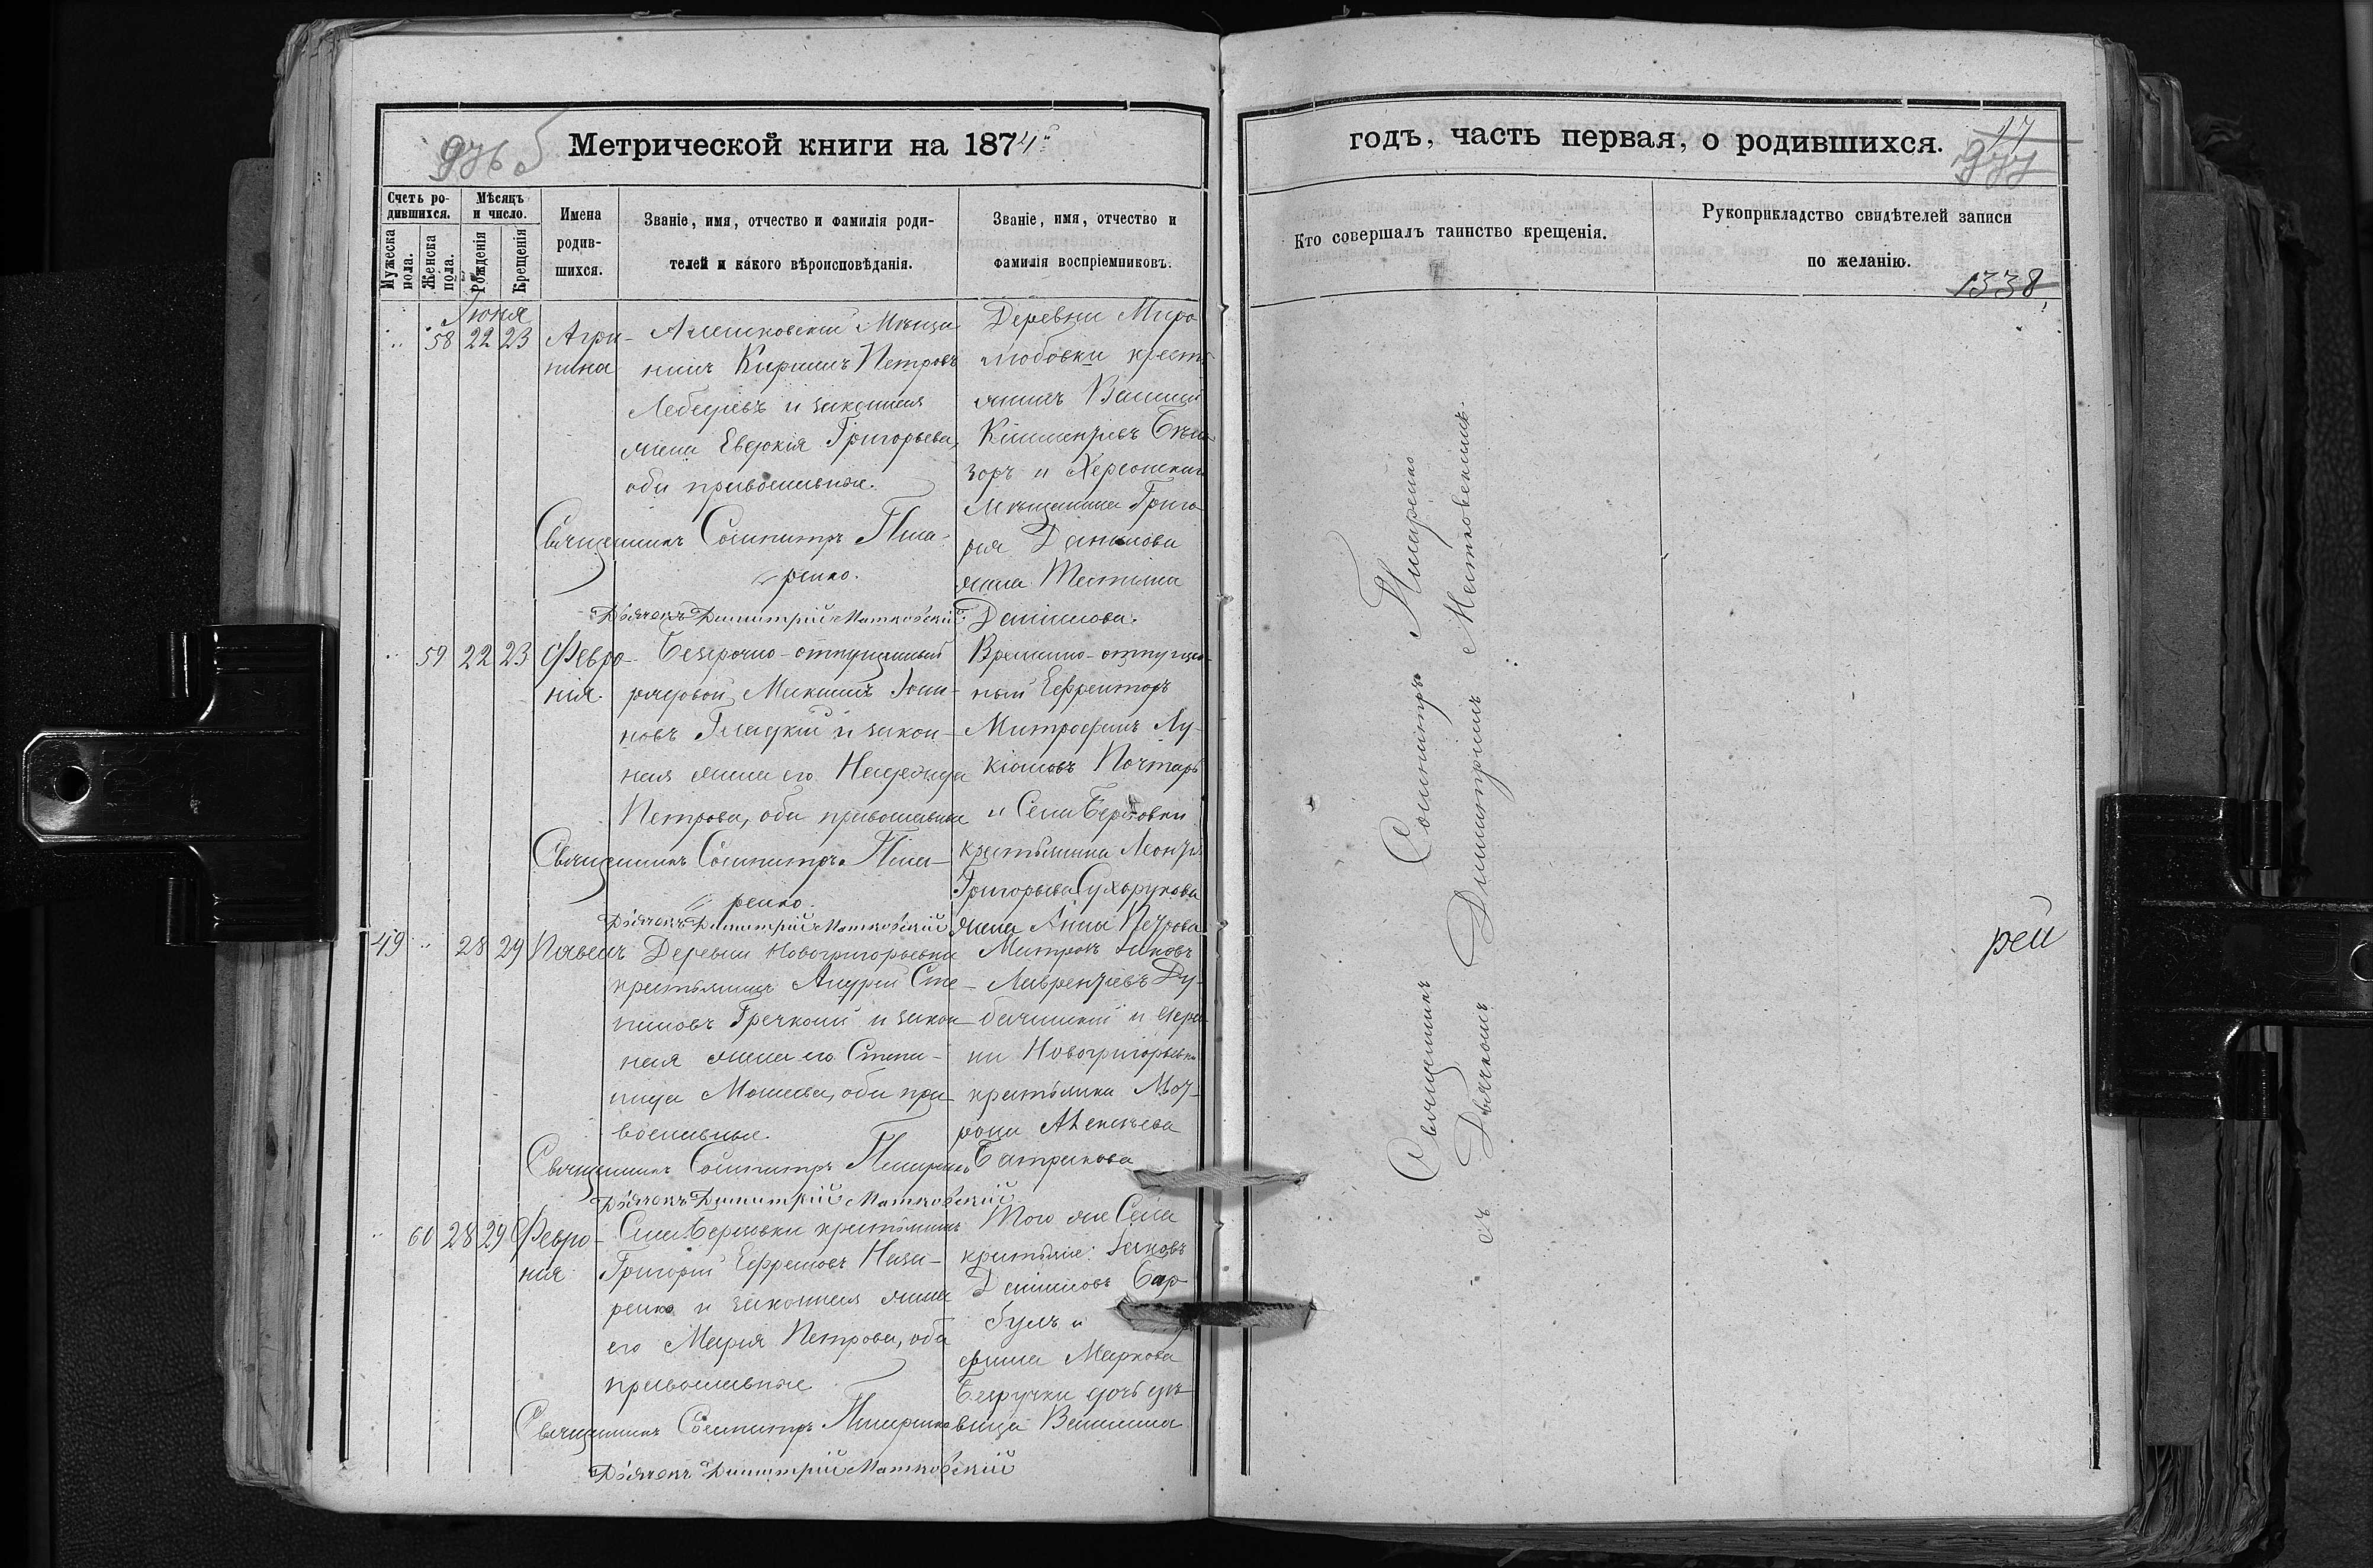 976 б
Метрической книги на 1874й
Счетъ ро-
дившихся.
Мѣсяцъ
и число.
Мужеска
пола.
Женска
пола.
Рожденія
Крещенія
Имена
родив-
шихся.
Званіе, имя, отчество и фамилія роди-
телей и какого вѣроисповѣданія.
Званіе, имя, отчество и
фамилія воспріемниковъ.
Іюня
58 22 23 Агри-
пина
Мѣща
нинъ Петровъ
Лебедевъ и законная
жена Евдокія Григорьева,
оба православные.
Священникъ Сосипатръ Писа-
ренко.
Дьячокъ Димитрій Матковскій
Деревни Миро
любовки кресть
янинъ
и Херсонскаго
мѣщанина Григо
рія Данилова
жена Татіана
Данилова.
59 22 23 Февро-
нія.
Безсрочно-отпущенный
рядовой Іоан-
новъ Гладкій и закон-
ная жена его Надежда
Петрова, оба православные
Священникъ Сосипатръ Писа-
ренко.
Дьячокъ Димитрій Матковскій
Временно-отпущен-
ный Ефрейторъ
Митрофанъ Лу-
кіановъ Почтарь
и Села
крестьянина Леонтія
Григорьева Сухорукова
жена Анна Петрова
49 28 29 Павелъ
Деревни Новогригорьевки
крестьянинъ Андрей Сте-
пановъ и закон-
ная жена его Степа-
нида оба пра-
вославные.
Священникъ Сосипатръ Писаренко
Дьячокъ Димитрій Матковскій
Іаковъ
Лаврентіевъ Ду-
и дере
ни Новогригорьевки
крестьянка Мат-
рона Алексѣева
60 28 29 Февро-
нія
Села крестьянинъ
Григорій Ефремовъ Наза-
ренко и законная жена
его Марія Петрова, оба
православные
Священникъ Сосипатръ Писаренко
Дьячокъ Димитрій Матковскій
Того же Села
крестьяне: Іаковъ
Даниловъ
и
Маркова
дочь дѣ-
вица
годъ, часть первая, о родившихся.
17
977
Кто совершалъ таинство крещенія.
Рукоприкладство свидѣтелей записи
по желанію.
1338
Священникъ Сосипатръ Писаренко
съ Дьячкомъ Димитріемъ Матковскимъ.
рей